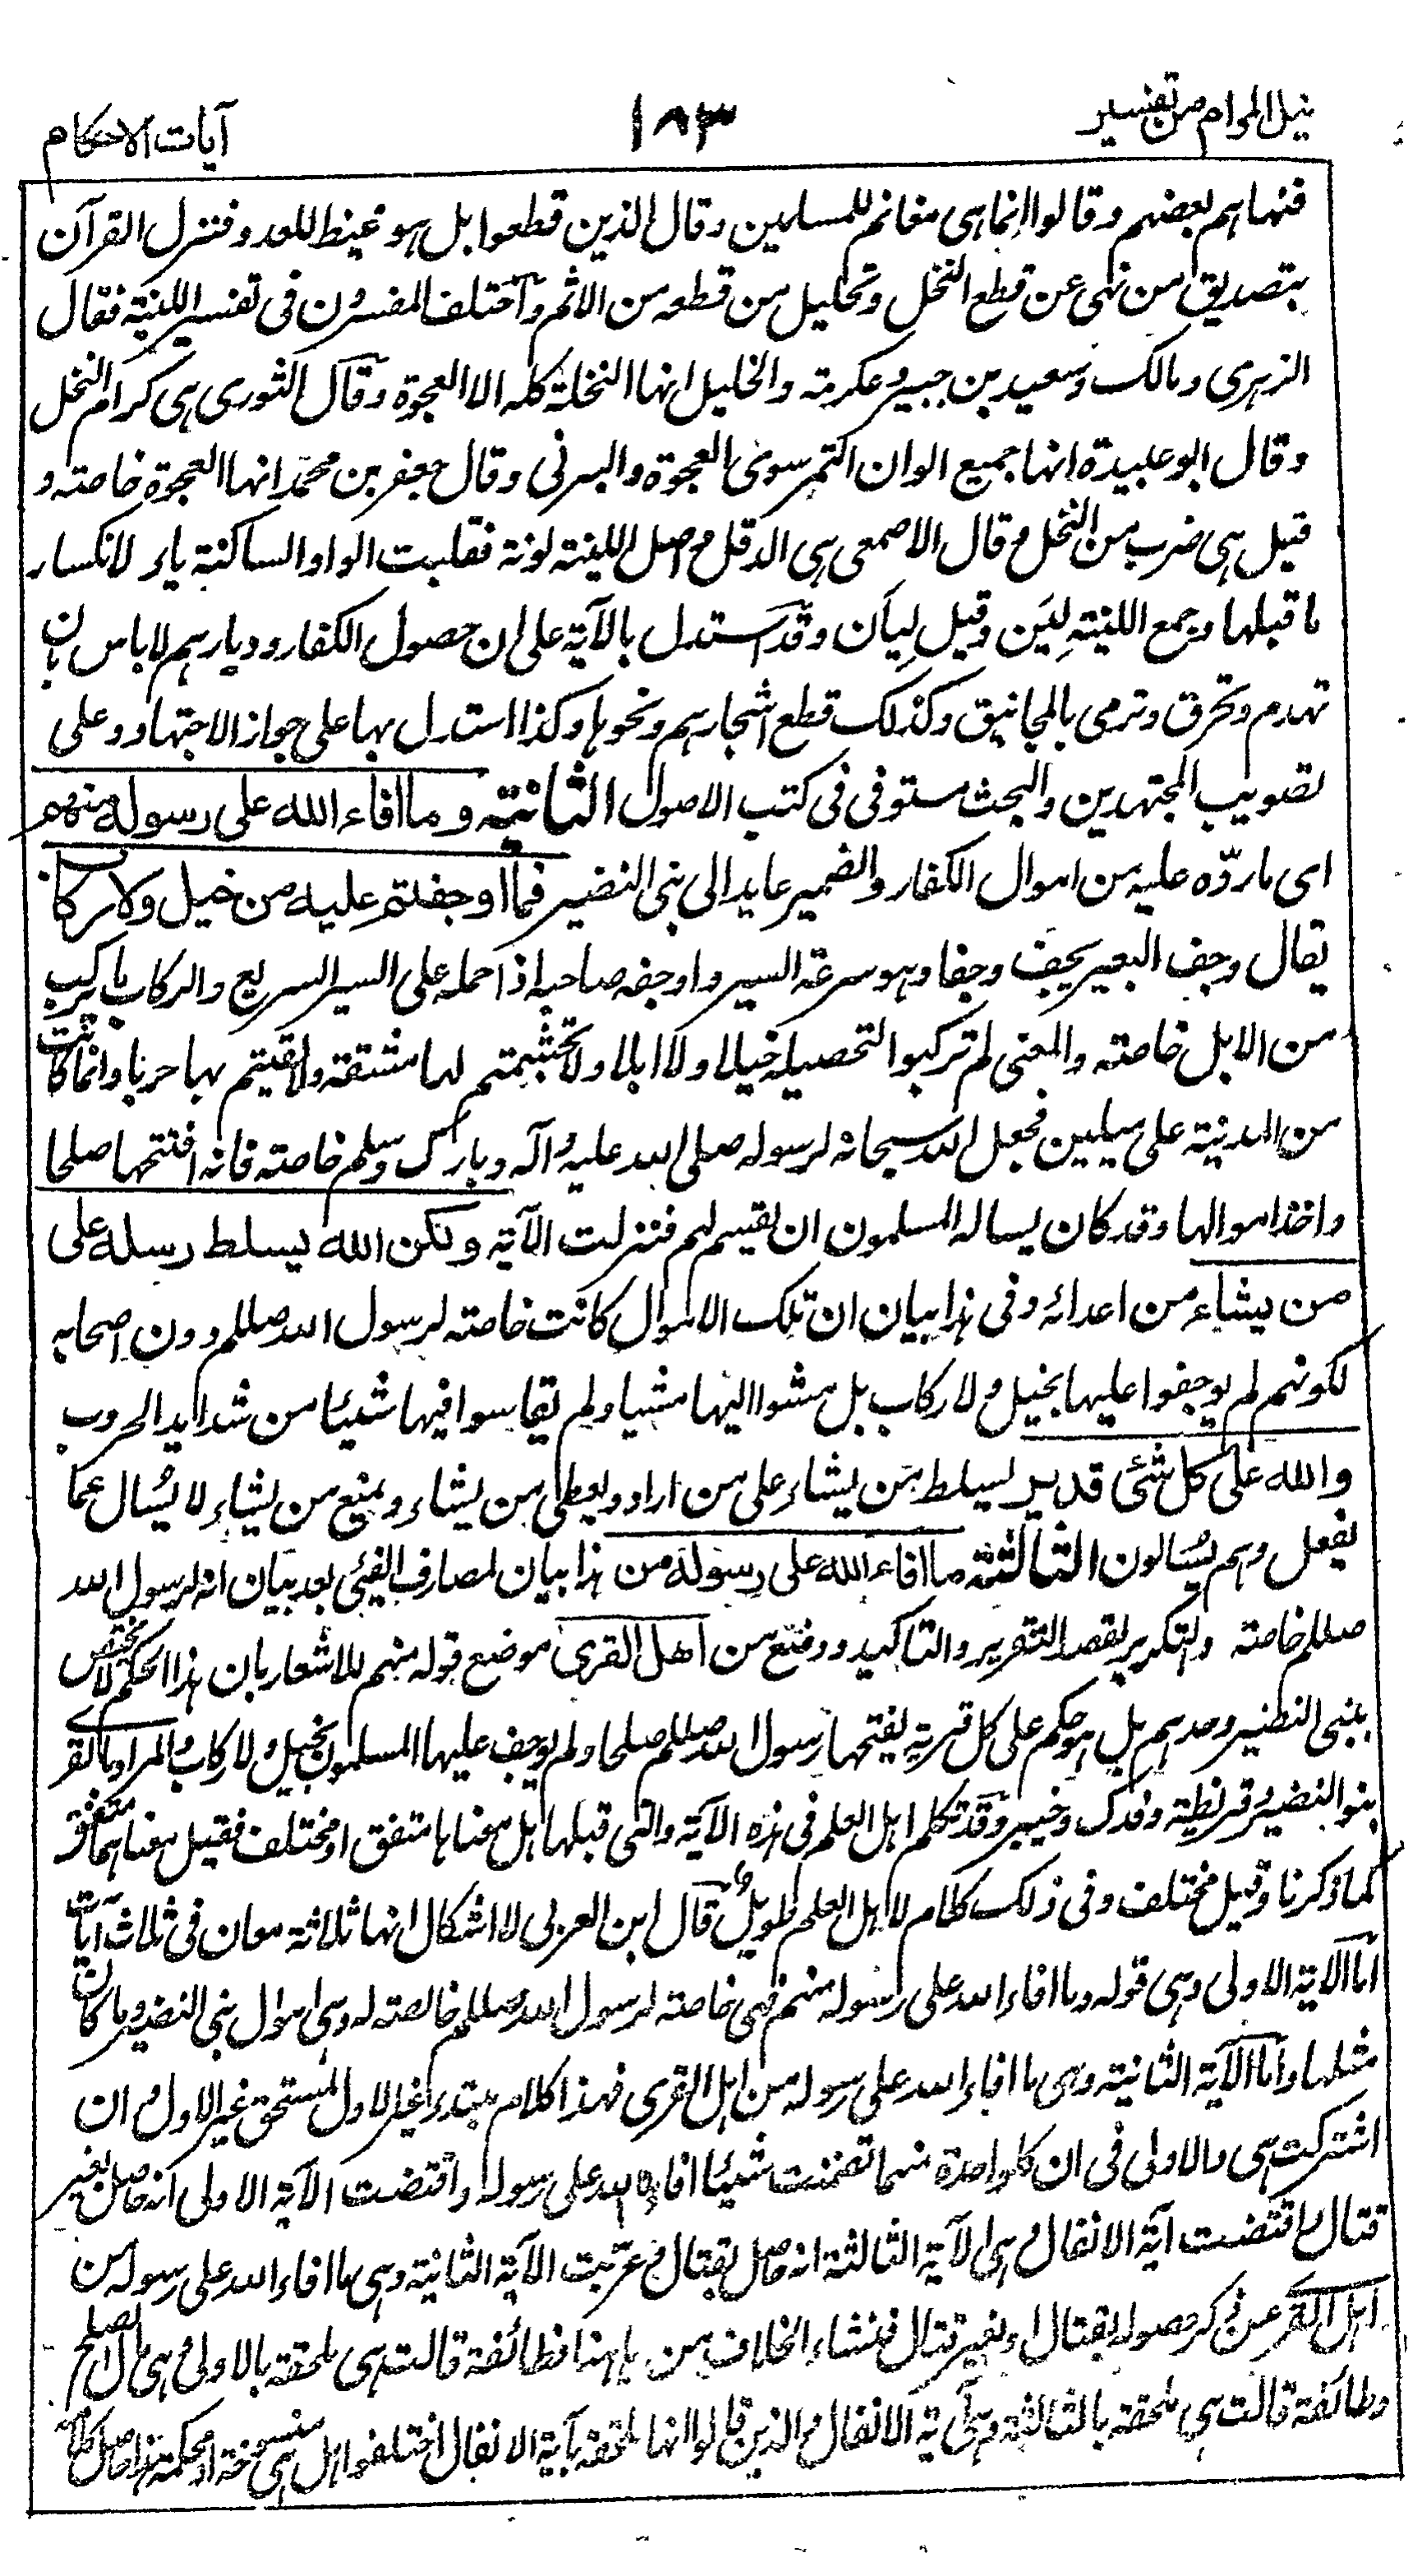 نيل المرام من تفسير ١٨٣ آيات الاحكام
فنهاهم بعضهم وقالوا انما هى مغانم للمسلمين وقال الذين قطعوا بل هو غيظ للعدو فنزل القرآن
بتصديق من نهى عن قطع النخل وتحليل من قطعه من الاثم واختلف المفسرون فى تفسير اللينة فقال
الزهرى ومالك وسعيد بن جبير وعكرمة والخليل انها النخلة كله الا العجوة وقال الثورى هى كرام النخل
وقال ابو عبيدة انها جميع الوان التمر سوى العجوة والبرنى وقال جعفر بن محمد انها العجوة خاصته و
قيل هى ضرب من النخل وقال الاصمعى هى الدقل واصل اللينة لونة فقلبت الواو الساكنة ياء لانكسار
ما قبلها وجمع اللينة لِيَن وقيل لِيَان وقد استدل بالآية على ان حصول الكفار وديارهم لا باس بان
تهدم وتحرق وترمى بالمجانيق وكذلك قطع اشجارهم ونحوها وكذا استدل بها على جواز الاجتهاد وعلى
تصويب المجتهدين والبحث مستوفى فى كتب الاصول الثانية وما افاء الله على رسوله منهم
اى ما ردّه عليه من اموال الكفار والضمير عايد الى بنى النضير فما اوجفتم عليه من خيل ولا ركاب
يقال وجف البعير يجف وجفا وهو سرعة السير واوجفه صاحبه اذا حمله على السير السريع والركاب ما يركب
من الابل خاصته والمعنى لم تركبوا لتحصيله خيلا ولا ابلا ولا تجشمتم لها مشقة ولا لقيتم بها حربا وانما كانت
من المدينة على ميلين فجعل الله سبحانه لرسوله صلى الله عليه وآله وبارك وسلم خاصته فانه افتتحها صلحا
واخذ اموالها وقد كان يساله المسلمون ان يقسم لهم فنزلت الآية ولكن الله يسلط رسله على
من يشاء من اعدائه وفى هذا بيان ان تلك الاموال كانت خاصته لرسول الله صللم دون اصحابه
لكونهم لم يوجفوا عليها بخيل ولا ركاب بل مشوا اليها مشيا ولم يقاسوا فيها شيئا من شدايد الحروب
والله على كل شئ قدير يسلط من يشاء على من اراد ويعطى من يشاء ويمنع من يشاء لا يُسال عما
يفعل وهم يُسالون الثالثة ما افاء الله على رسوله من هذا بيان لمصارف الفيئ بعد بيان انه لرسول الله
صللم خاصته والتكرير لقصد التقرير والتاكيد ووضع من اهل القرى موضع قوله منهم للاشعار بان هذا الحكم لا يختص
ببنى النضير وحدهم بل هو حكم على كل قرية يفتحها رسول الله صللم صلحا ولم يوجف عليها المسلمون بخيل ولا ركاب والمراد بالقرى
بنو النضير وقريظة وفدك وخيبر وقد تكلم اهل العلم فى هذه الآية والتى قبلها هل معناها متفق او مختلف فقيل معناهما متفق
كما ذكرنا وقيل مختلف وفى ذلك كلام لاهل العلم طويل قال ابن العربى لا اشكال انها ثلاثة معان فى ثلاث آيات
اما الآية الاولى وهى قوله وما افاء الله على رسوله منهم فهى خاصته لرسول الله صللم خالصته له وهى اموال بنى النضير وما كان
مثلها واما الآية الثانية وهى ما افاء الله على رسوله من اهل القرى فهذا كلام مبتدء غير الاول لمستحق غير الاول وان
اشتركت هى والاولى فى ان كل واحدة منهما تضمنت شيئا افاءه الله على رسوله واقتضت الآية الاولى انه حاصل بغير
قتال واقتضت آية الانفال وهى الآية الثالثة انه حاصل بقتال وعريت الآية الثانية وهى ما افاء الله على رسوله من
اهل القرى عن ذكر حصوله بقتال او بغير قتال فنشاء الخلاف من هاهنا فطائفة قالت هى ملحقة بالاولى وهى مال الصلح
وطائفة قالت هى ملحقة بالثالثة وهى آية الانفال والذين قالوا انها ملحقة بآية الانفال اختلفوا هل هى منسوخة او محكمة هذا حاصل كلامه